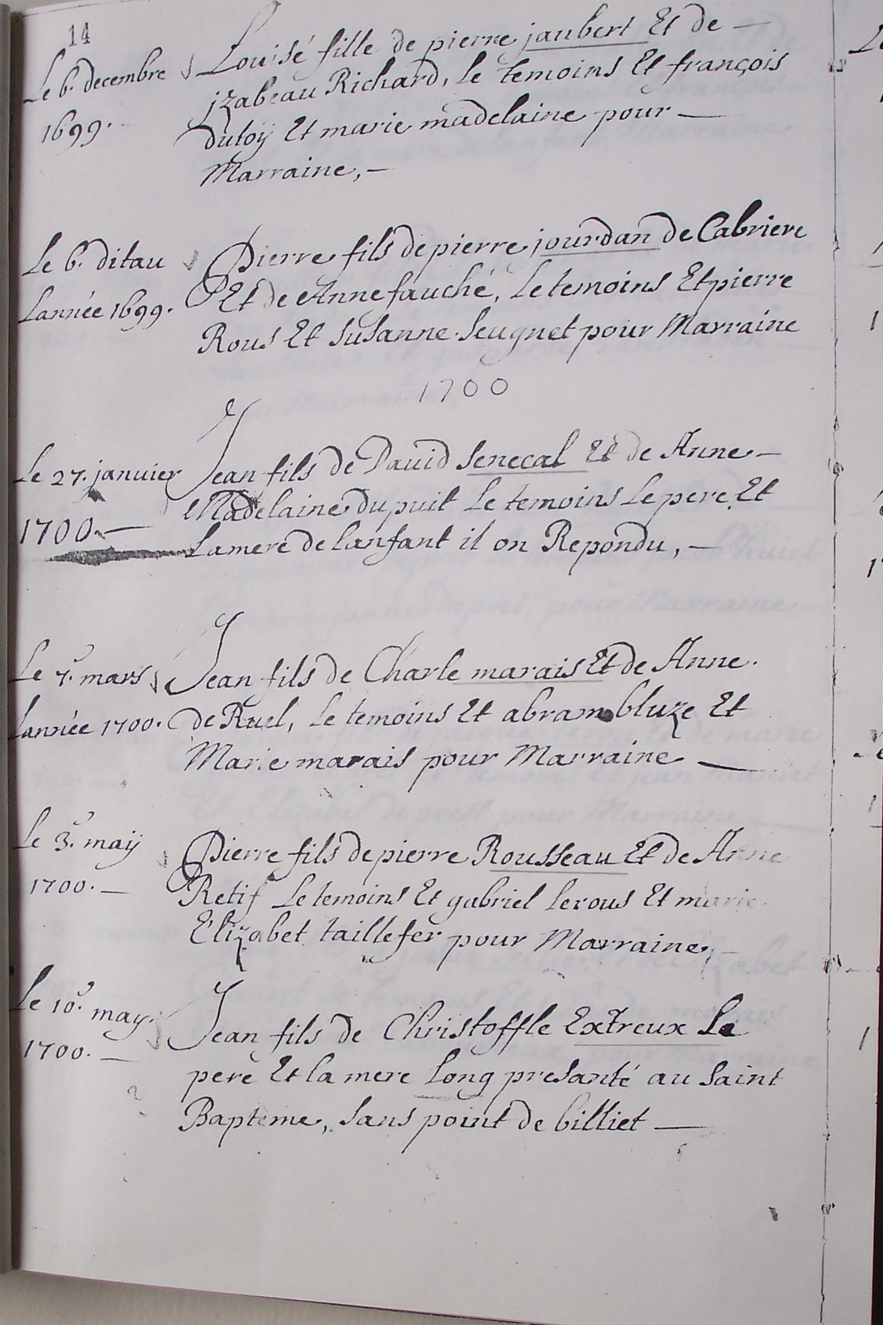 14
Le 6. decembre
1699.
Louise fille de pierre jaubert Et de
jzabeau Richard, Le temoins Et françois
dutoÿ Et marie madelaine pour
Marraine,
Le 6. ditau
Lannée 1699.
Pierre fils de pierre jourdan de Cabriere
Et de Anne fauché, Le temoins Et pierre
Rous Et Susanne Seugnet pour Marraine
1700
Le 27. janvier
1700.
Jean fils de David Senecal Et de Anne
Madelaine dupuit Le temoins Le pere Et
Lamere de lanfant il on Repondu,
Le 7. mars
Lannée 1700.
Jean fils de Charle marais Et de Anne
de Ruel, Le temoins Et abram bluze Et
Marie marais pour Marraine
Le 3. maÿ
1700.
Pierre fils de pierre Rousseau Et de Anne
Retif Le temoins Et gabriel Lerous Et marie
Elizabet taillefer pour Marraine,
Le 10. may.
1700.
Jean fils de Christoffle Extreux Le
pere Et la mere Long presanté au Saint
Bapteme, Sans point de billiet